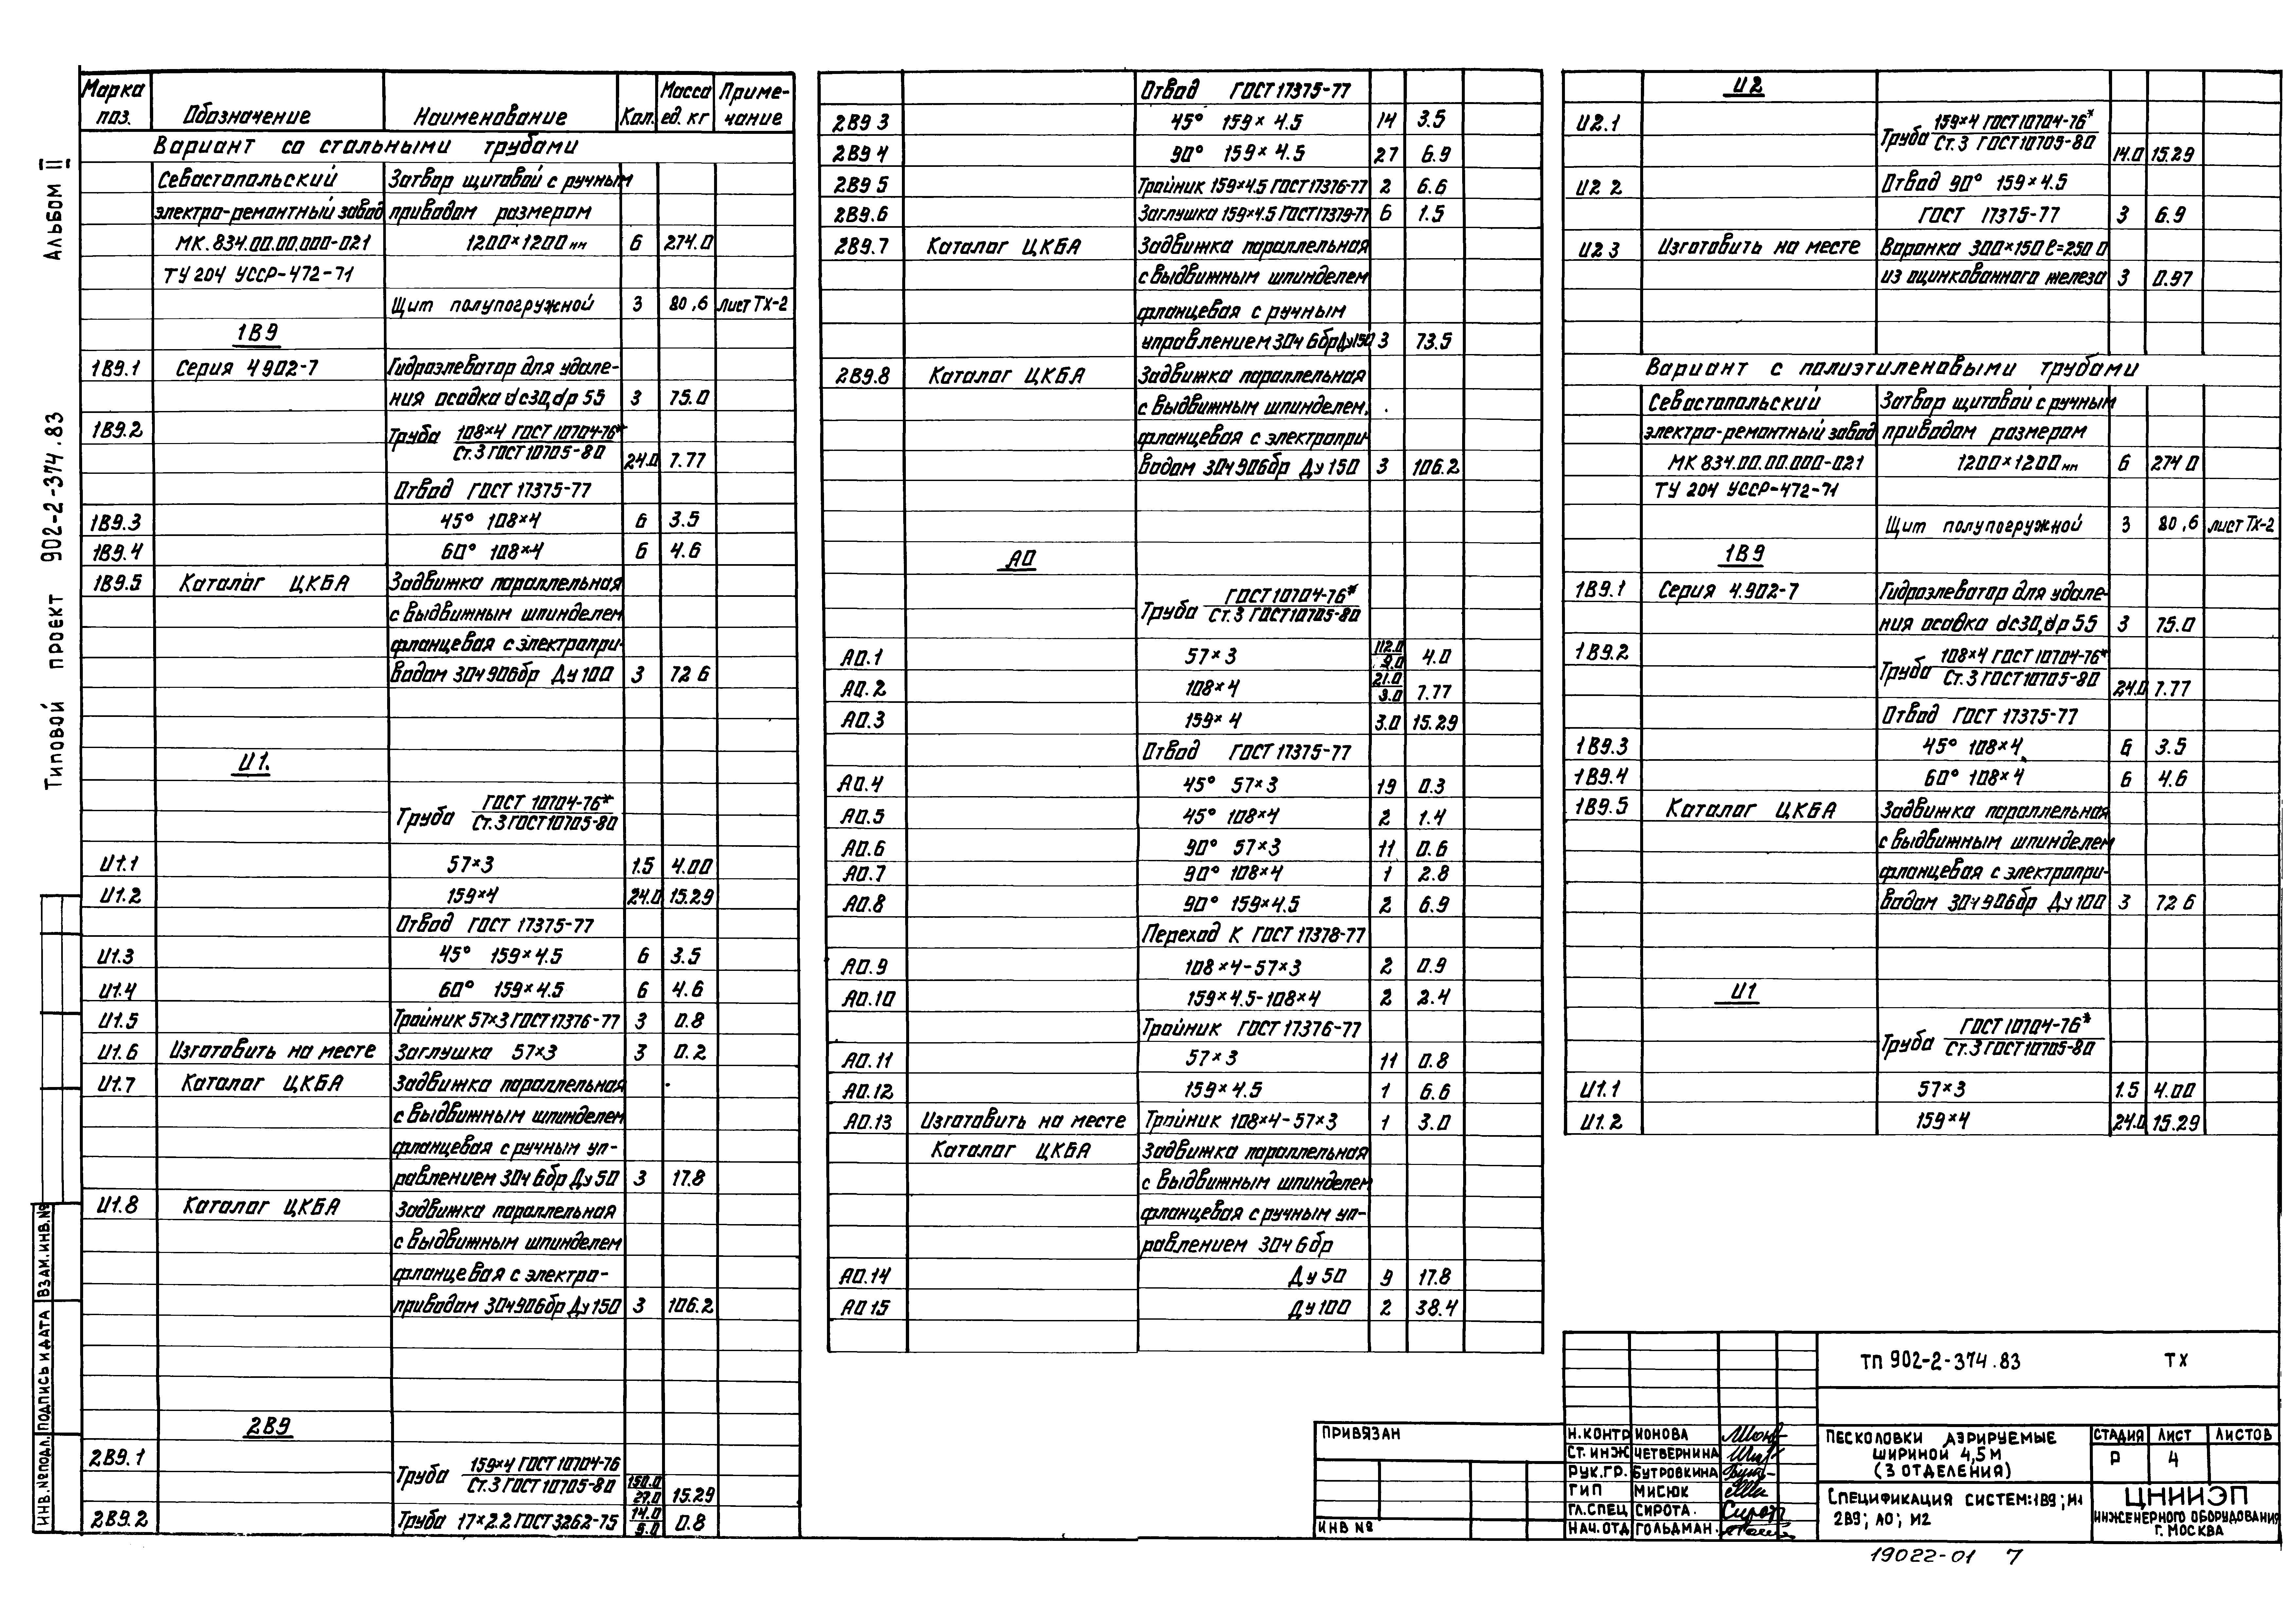 Альбом II
Типовой проект 902-2-374.83
Марка поз. Обозначение Наименование Кол. Масса ед. кг Приме-чание
Вариант со стальными трубами
Севастопольский Затвор щитовой с ручным
электро-ремонтный завод приводом размером
МК.834.00.00.000-021 1200×1200 мм 6 274.0
ТУ 204 УССР-472-71
Щит полупогружной 3 80,6 лист ТХ-2
1В9
1В9.1 Серия 4902-7 Гидроэлеватор для удале-
ния осадка dc30,dp 55 3 75.0
1В9.2 Труба 108×4 ГОСТ 10704-76*
Ст.3 ГОСТ 10705-80 24.0 7.77
Отвод ГОСТ 17375-77
1В9.3 45° 108×4 6 3.5
1В9.4 60° 108×4 6 4.6
1В9.5 Каталог ЦКБА Задвижка параллельная
с выдвижным шпинделем
фланцевая с электропри-
водом 30ч906бр Ду100 3 72 6
И1.
Труба ГОСТ 10704-76*
Ст.3 ГОСТ 10705-80
И1.1 57×3 1.5 4.00
И1.2 159×4 24.0 15.29
Отвод ГОСТ 17375-77
И1.3 45° 159×4.5 6 3.5
И1.4 60° 159×4.5 6 4.6
И1.5 Тройник 57×3 ГОСТ 17376-77 3 0.8
И1.6 Изготовить на месте Заглушка 57×3 3 0.2
И1.7 Каталог ЦКБА Задвижка параллельная
с выдвижным шпинделем
фланцевая с ручным уп-
равлением 30ч 6бр Ду 50 3 17.8
И1.8 Каталог ЦКБА Задвижка параллельная
с выдвижным шпинделем
фланцевая с электро-
приводом 30ч906бр Ду150 3 106.2
2В9
2В9.1 Труба 159×4 ГОСТ 10704-76
Ст.3 ГОСТ 10705-80 150.0 27.0 15.29
2В9.2 Труба 17×2.2 ГОСТ 3262-75 14.0 9.0 0.8
Отвод ГОСТ 17375-77
2В9 3 45° 159×4.5 14 3.5
2В9 4 90° 159×4.5 27 6.9
2В9 5 Тройник 159×4.5 ГОСТ 17376-77 2 6.6
2В9.6 Заглушка 159×4.5 ГОСТ 17379-77 6 1.5
2В9.7 Каталог ЦКБА Задвижка параллельная
с выдвижным шпинделем
фланцевая с ручным
управлением 30ч 6бр Ду150 3 73.5
2В9.8 Каталог ЦКБА Задвижка параллельная
с выдвижным шпинделем,
фланцевая с электропри-
водом 30ч906бр Ду 150 3 106.2
АО
Труба ГОСТ 10704-76*
Ст.3 ГОСТ 10705-80
АО.1 57×3 112.0 9.0 4.0
АО.2 108×4 21.0 3.0 7.77
АО.3 159×4 3.0 15.29
Отвод ГОСТ 17375-77
АО.4 45° 57×3 19 0.3
АО.5 45° 108×4 2 1.4
АО.6 90° 57×3 11 0.6
АО.7 90° 108×4 1 2.8
АО.8 90° 159×4.5 2 6.9
Переход К ГОСТ 17378-77
АО.9 108×4-57×3 2 0.9
АО.10 159×4.5-108×4 2 2.4
Тройник ГОСТ 17376-77
АО.11 57×3 11 0.8
АО.12 159×4.5 1 6.6
АО.13 Изготовить на месте Тройник 108×4-57×3 1 3.0
Каталог ЦКБА Задвижка параллельная
с выдвижным шпинделем
фланцевая с ручным уп-
равлением 30ч 6бр
АО.14 Ду 50 9 17.8
АО 15 Ду100 2 38.4
И2
И2.1 Труба 159×4 ГОСТ 10704-76*
Ст.3 ГОСТ 10705-80 14.0 15.29
И2 2 Отвод 90° 159×4.5
ГОСТ 17375-77 3 6.9
И2 3 Изготовить на месте Воронка 300×150 ℓ=250 0
из оцинкованного железа 3 0.97
Вариант с полиэтиленовыми трубами
Севастопольский Затвор щитовой с ручным
электро-ремонтный завод приводом размером
МК 834.00.00.000-021 1200×1200 мм 6 274 0
ТУ 204 УССР-472-71
Щит полупогружной 3 80,6 лист ТХ-2
1В9
1В9.1 Серия 4.902-7 Гидроэлеватор для удале-
ния осадка dc30,dp 55 3 75.0
1В9.2 Труба 108×4 ГОСТ 10704-76*
Ст.3 ГОСТ 10705-80 24.0 7.77
Отвод ГОСТ 17375-77
1В9.3 45° 108×4 6 3.5
1В9.4 60° 108×4 6 4.6
1В9.5 Каталог ЦКБА Задвижка параллельная
с выдвижным шпинделем
фланцевая с электропри-
водом 30ч906бр Ду100 3 72 6
И1
Труба ГОСТ 10704-76*
Ст.3 ГОСТ 10705-80
И1.1 57×3 1.5 4.00
И1.2 159×4 24.0 15.29
ИНВ.№ПОДЛ. ПОДПИСЬ И ДАТА ВЗАМ.ИНВ.№
ПРИВЯЗАН
ИНВ №
ТП 902-2-374.83 ТХ
Н.КОНТР ИОНОВА
СТ.ИНЖ ЧЕТВЕРНИНА
РУК.ГР. БУТРОВКИНА
ГИП МИСЮК
ГЛ.СПЕЦ СИРОТА.
НАЧ.ОТД ГОЛЬДМАН.
ПЕСКОЛОВКИ АЭРИРУЕМЫЕ
ШИРИНОЙ 4,5 М
(3 ОТДЕЛЕНИЯ)
СТАДИЯ ЛИСТ ЛИСТОВ
Р 4
СПЕЦИФИКАЦИЯ СИСТЕМ: 1В9; И1
2В9; АО; И2
ЦНИИЭП
ИНЖЕНЕРНОГО ОБОРУДОВАНИЯ
Г. МОСКВА
19022-01 7